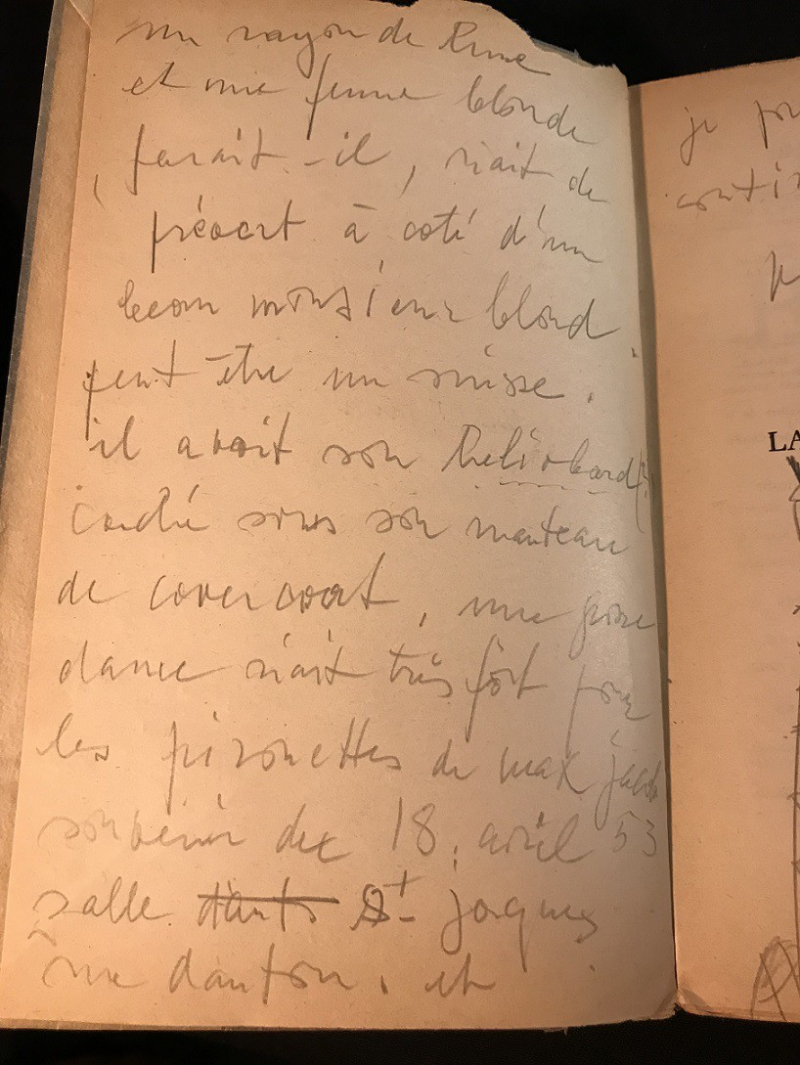 un rayon de lune
et une femme blonde
, parait-il, riait de
prévert à coté d'un
beau monsieur blond
peut être un suisse.
il avait son
caché sous son manteau
de covercoat, une
dame riait très fort pour
les pirouettes de max jacob
souvenir du 18. avril 53
salle St jacques
rue danton. et
je
LA